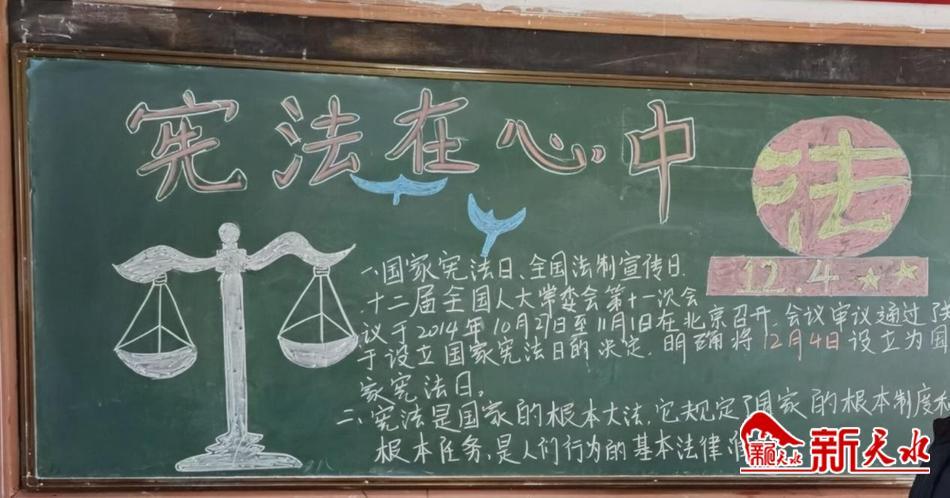 宪法在心中
法
12.4
一、国家宪法日、全国法制宣传日
十二届全国人大常委会第十一次会
议于2014年10月27日至11月1日在北京召开.会议审议通过
于设立国家宪法日的决定.明确将12月4日设立为国
家宪法日。
二、宪法是国家的根本大法.它规定了国家的根本制度和
根本任务、是人们行为的基本法律准
新天水